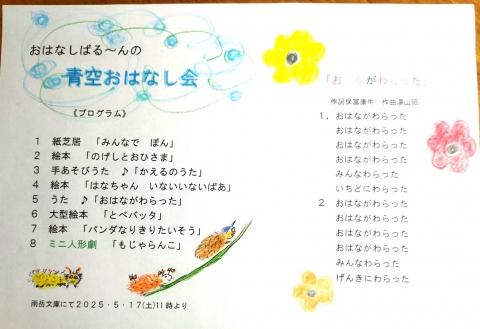 おはなしぱる～んの
青空おはなし会
《プログラム》
1 紙芝居 「みんなで ぽん」
2 絵本 「のげしとおひさま」
3 手あそびうた ♪「かえるのうた」
4 絵本 「はなちゃん いないいないばあ」
5 うた ♪「おはながわらった」
6 大型絵本 「とべバッタ」
7 絵本 「パンダなりきりたいそう」
8 ミニ人形劇 「もじゃらんこ」
雨岳文庫にて2025・5・17(土)11時より
「お ながわらった」
作詞保富康午 作曲湯山昭
1. おはながわらった
おはながわらった
おはながわらった
おはながわらった
みんなわらった
いちどにわらった
2 おはながわらった
おはながわらった
おはながわらった
おはながわらった
みんなわらった
げんきにわらった